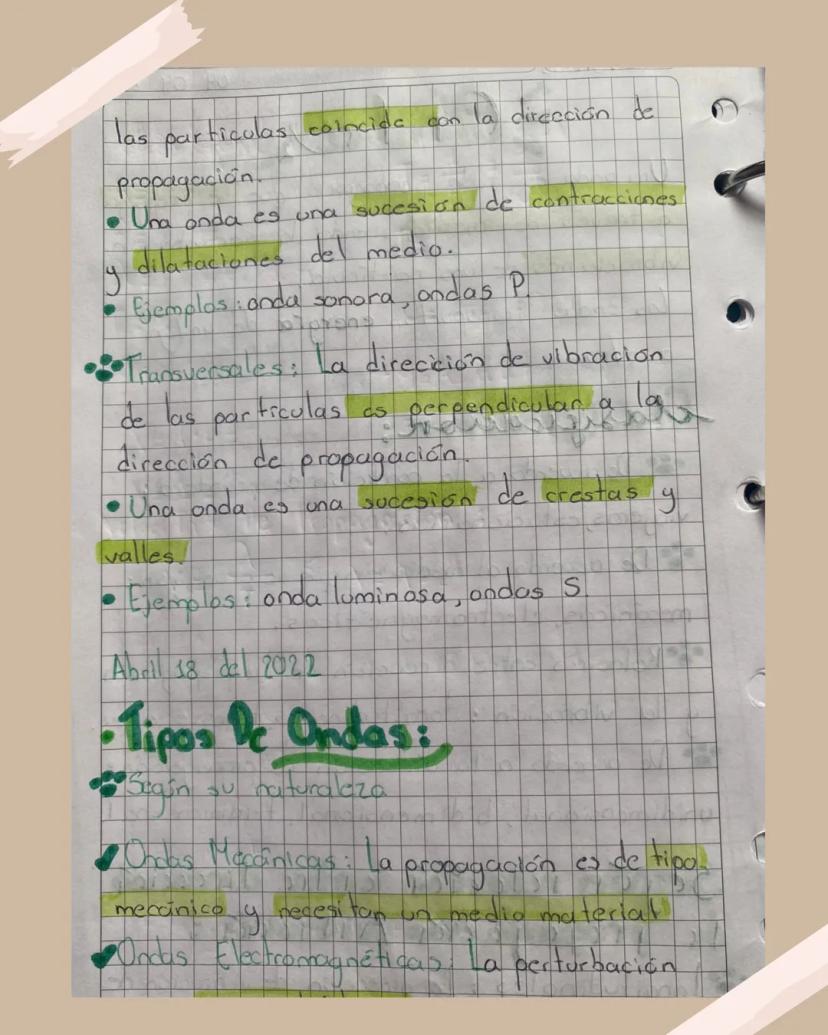 las particulas coincide con la dirección de
propagación.
• Una onda es una sucesión de contracciones
y dilataciones del medio.
• Ejemplos: onda sonora, ondas P.
Transversales: La dirección de vibración
de las particulas es perpendicular a la
dirección de propagación.
• Una onda es una sucesión de crestas y
valles.
• Ejemplos: onda luminosa, ondas S
Abril 18 del 2022
• Tipos De Ondas:
Según su naturaleza
✓ Ondas Mecánicas: La propagación es de tipo
mecánico y necesitan un medio material
✓ Ondas Electromagnéticas: La perturbación